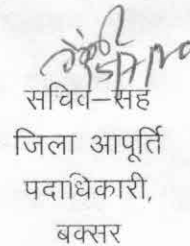 सचिव–सह
जिला आपूर्ति
पदाधिकारी,
बक्सर